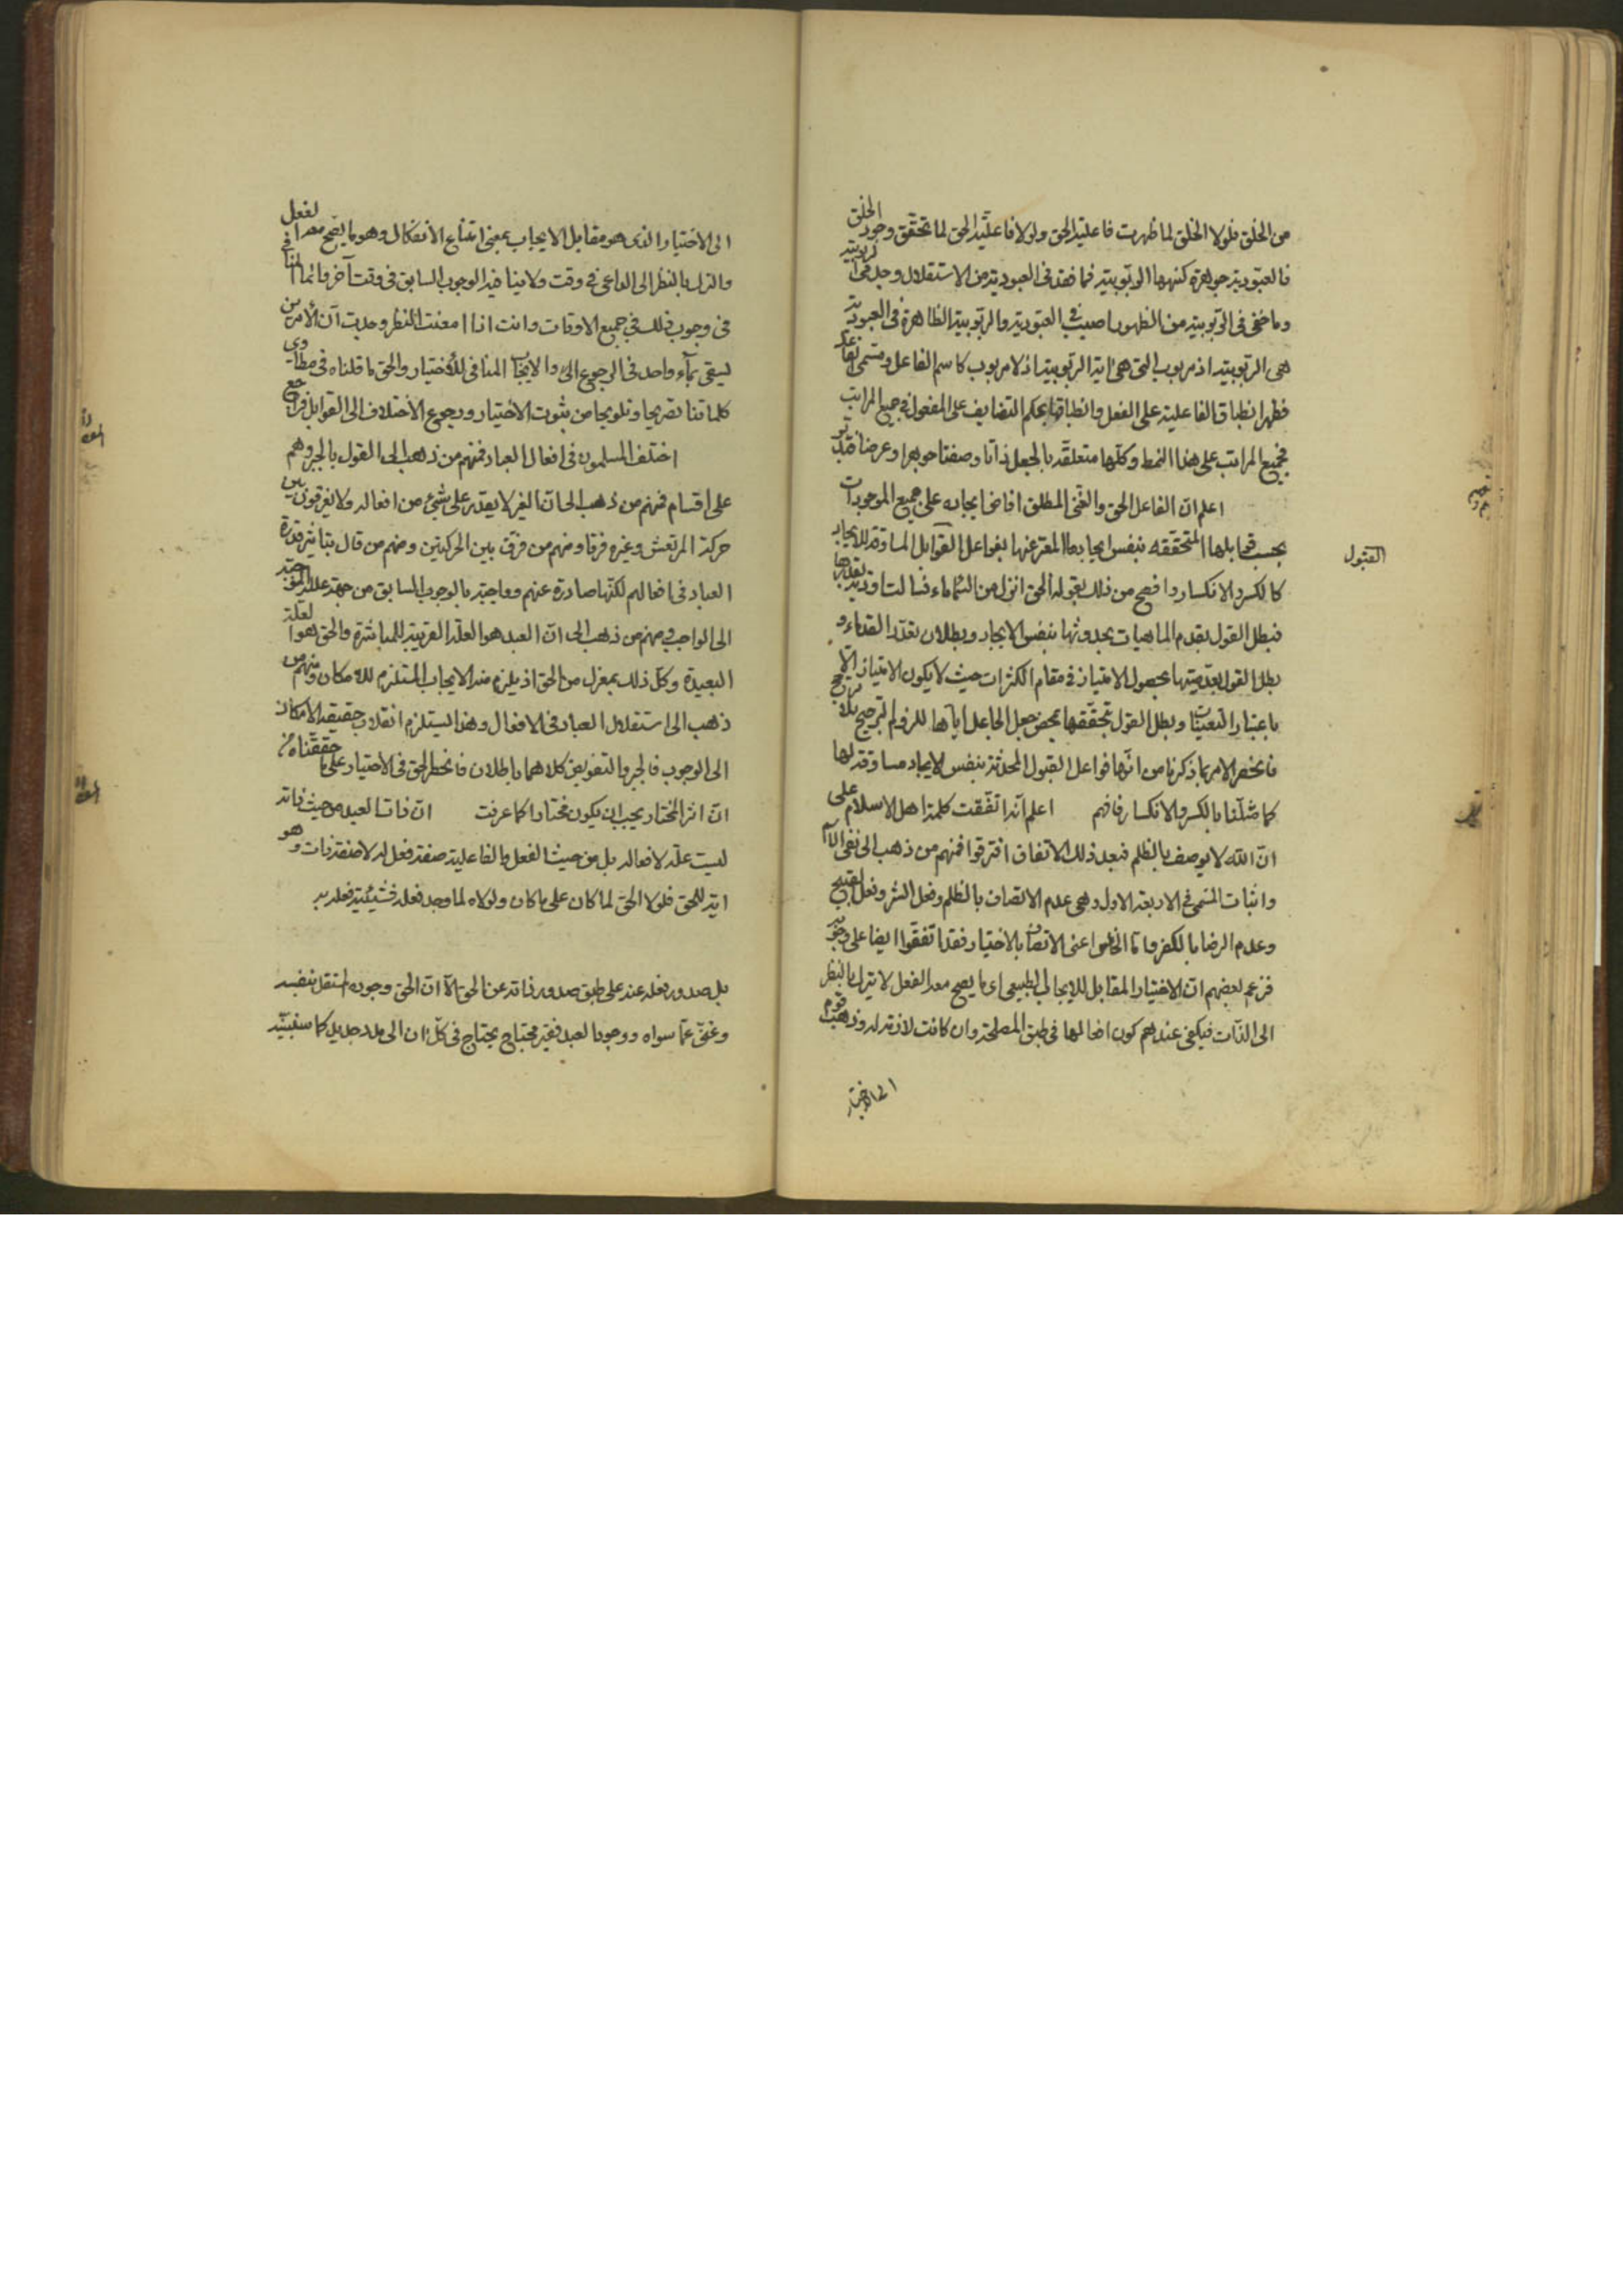 من الخلق فلولا الخلق لما ظهرت فاعلية الحق ولولا فاعلية الحق لما تحقق وجود الخلق
فالعبودية جوهرة كنهها الربوبية فما فقد في العبودية من الاستقلال وجد في الربوبية
وما خفي في الربوبية من الظهور اصيب في العبودية والربوبية الظاهرة في العبودية
هي الربوبية اذ مربوب التي هي اية الربوبية اذ لا مربوب كاسم الفاعل
فظهر انطباق الفاعلية على الفعل وانطباقها بحكم التضايف على المفعول في جميع المراتب
فجميع المراتب على هذا النمط وكلها متعلقة بالجعل ذاتا وصفتا جوهرا وعرضا
اعلم ان الفاعل الحق والغنى المطلق افاض ايجاده على جميع الموجودات
بحسب قوابلها المتحققه بنفس ايجادها المعبر عنها بفواعل القوابل المساوقة للايجاد
القبول
كالكسر والانكسار وافصح من ذلك بقوله الحق انزل من السماء ماء فسالت اودية بقدرها
فبطل القول بقدم الماهيات بحدوثها بنفس الايجاد وبطلان تعدد القدماء و
بطل القول بعدميتها بحصول الامتياز في مقام الكثرات حيث لا يكون الامتياز الا
باعتبار التعينات وبطل القول بتحققها بمحض جعل الجاعل اياها للزوم الترجيح بلا مرجح
فانحصر الامر بما ذكرنا من انها فواعل القبول المحدثة بنفس الايجاد مساوقة لها
كما مثلنا بالكسر والانكسار فافهم اعلم انه اتفقت كلمة اهل الاسلام على
ان الله لا يوصف بالظلم فبعد ذلك الاتفاق افترقوا فمنهم من ذهب الى نفي
واثبات المسمى في الاربعة الاول وهي عدم الاتصاف بالظلم وفعل الشر وفعل القبيح
وعدم الرضا بالكفر واما الخامس اعنى الاتصاف بالاختيار فقد اتفقوا ايضا على
فزعم بعضهم ان الاختيار المقابل للايجاب الطبيعي اي ما يصح معه الفعل لا يترك بالنظر
الى الذات فيكفي عندهم كون افعالها في طبق المصلحة وان كانت لازمة له وذهب قوم
الى الاختيار
الى الاختيار الذى هو مقابل الايجاب بمعنى امتناع الانفكاك وهو ما يصح معه الفعل
والترك بالنظر الى الداعى في وقت ولا ينافيه الوجوب السابق في وقت آخر وانما المنافي
في وجوب ذلك في جميع الاوقات وانت اذا امعنت النظر وجدت ان الأمرين
ليسقى بماء واحد في الرجوع الى الايجاب المنافي للأختيار والحق ما قلناه في مطاوى
كلماتنا تصريحا وتلويحا من ثبوت الأختيار ورجوع الأختلاف الى القوابل فراجع
اختلف المسلمون في افعال العباد فمنهم من ذهب الى القول بالجبر وهم
على اقسام فمنهم من ذهب الى ان الغير لا يقدر على شيء من افعاله ولا يفرقون بين
حركة المرتعش وغيره فرقا ومنهم من فرق بين الحركتين ومنهم من قال بتاثير قدرة
العباد في افعالهم لكنها صادرة عنهم وواجبة بالوجوب السابق من جهة عللة الموجبة
الى الواجب ومنهم من ذهب الى ان العبد هو العلة القريبة للمباشرة والحق هو العلة
البعيدة وكل ذلك بمعزل من الحق اذ يلزم منه الايجاب المستلزم للامكان ومنهم من
ذهب الى استقلال العباد في الافعال وهذا يستلزم انقلاب حقيقة الامكان
الى الوجوب فالجبر والتفويض كلاهما باطلان فانحصر الحق في الاختيار على ما حققناه من
ان اثر المختار يجب ان يكون مختارا كما عرفت ان ذات العبد من حيث ذاته
ليست علة لافعاله بل من حيث الفعل والفاعلية صفة فعل له لا صفة ذات وهو
اية للحق فلولا الحق لما كان على ما كان ولولاه لما وجد فعله فشيئية فعله به
بل صدور فعله عنه على طبق صدور ذاته عن الحق الا ان الحق وجوده استقل بنفسه
وغنى عما سواه ووجود العبد فقير محتاج يحتاج في كل آن الى مدد جديد كما سنبينه